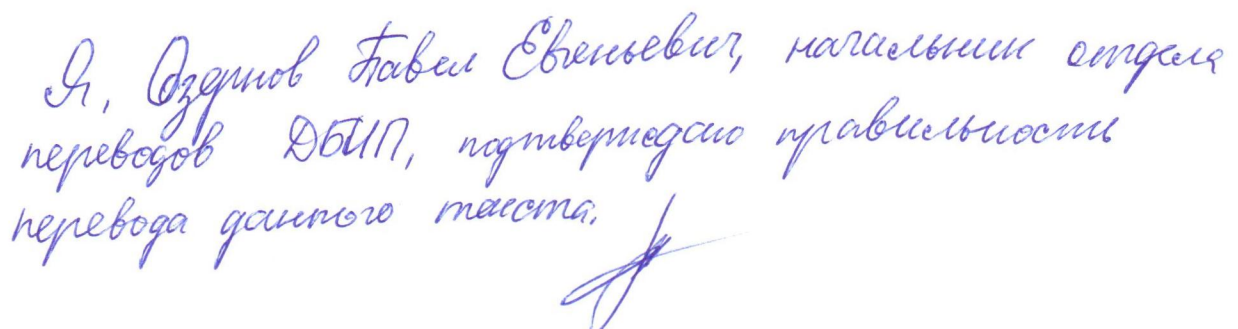 Я, Озернов Павел Евгеньевич, начальник отдела
переводов ДБИП, подтверждаю правильность
перевода данного текста.